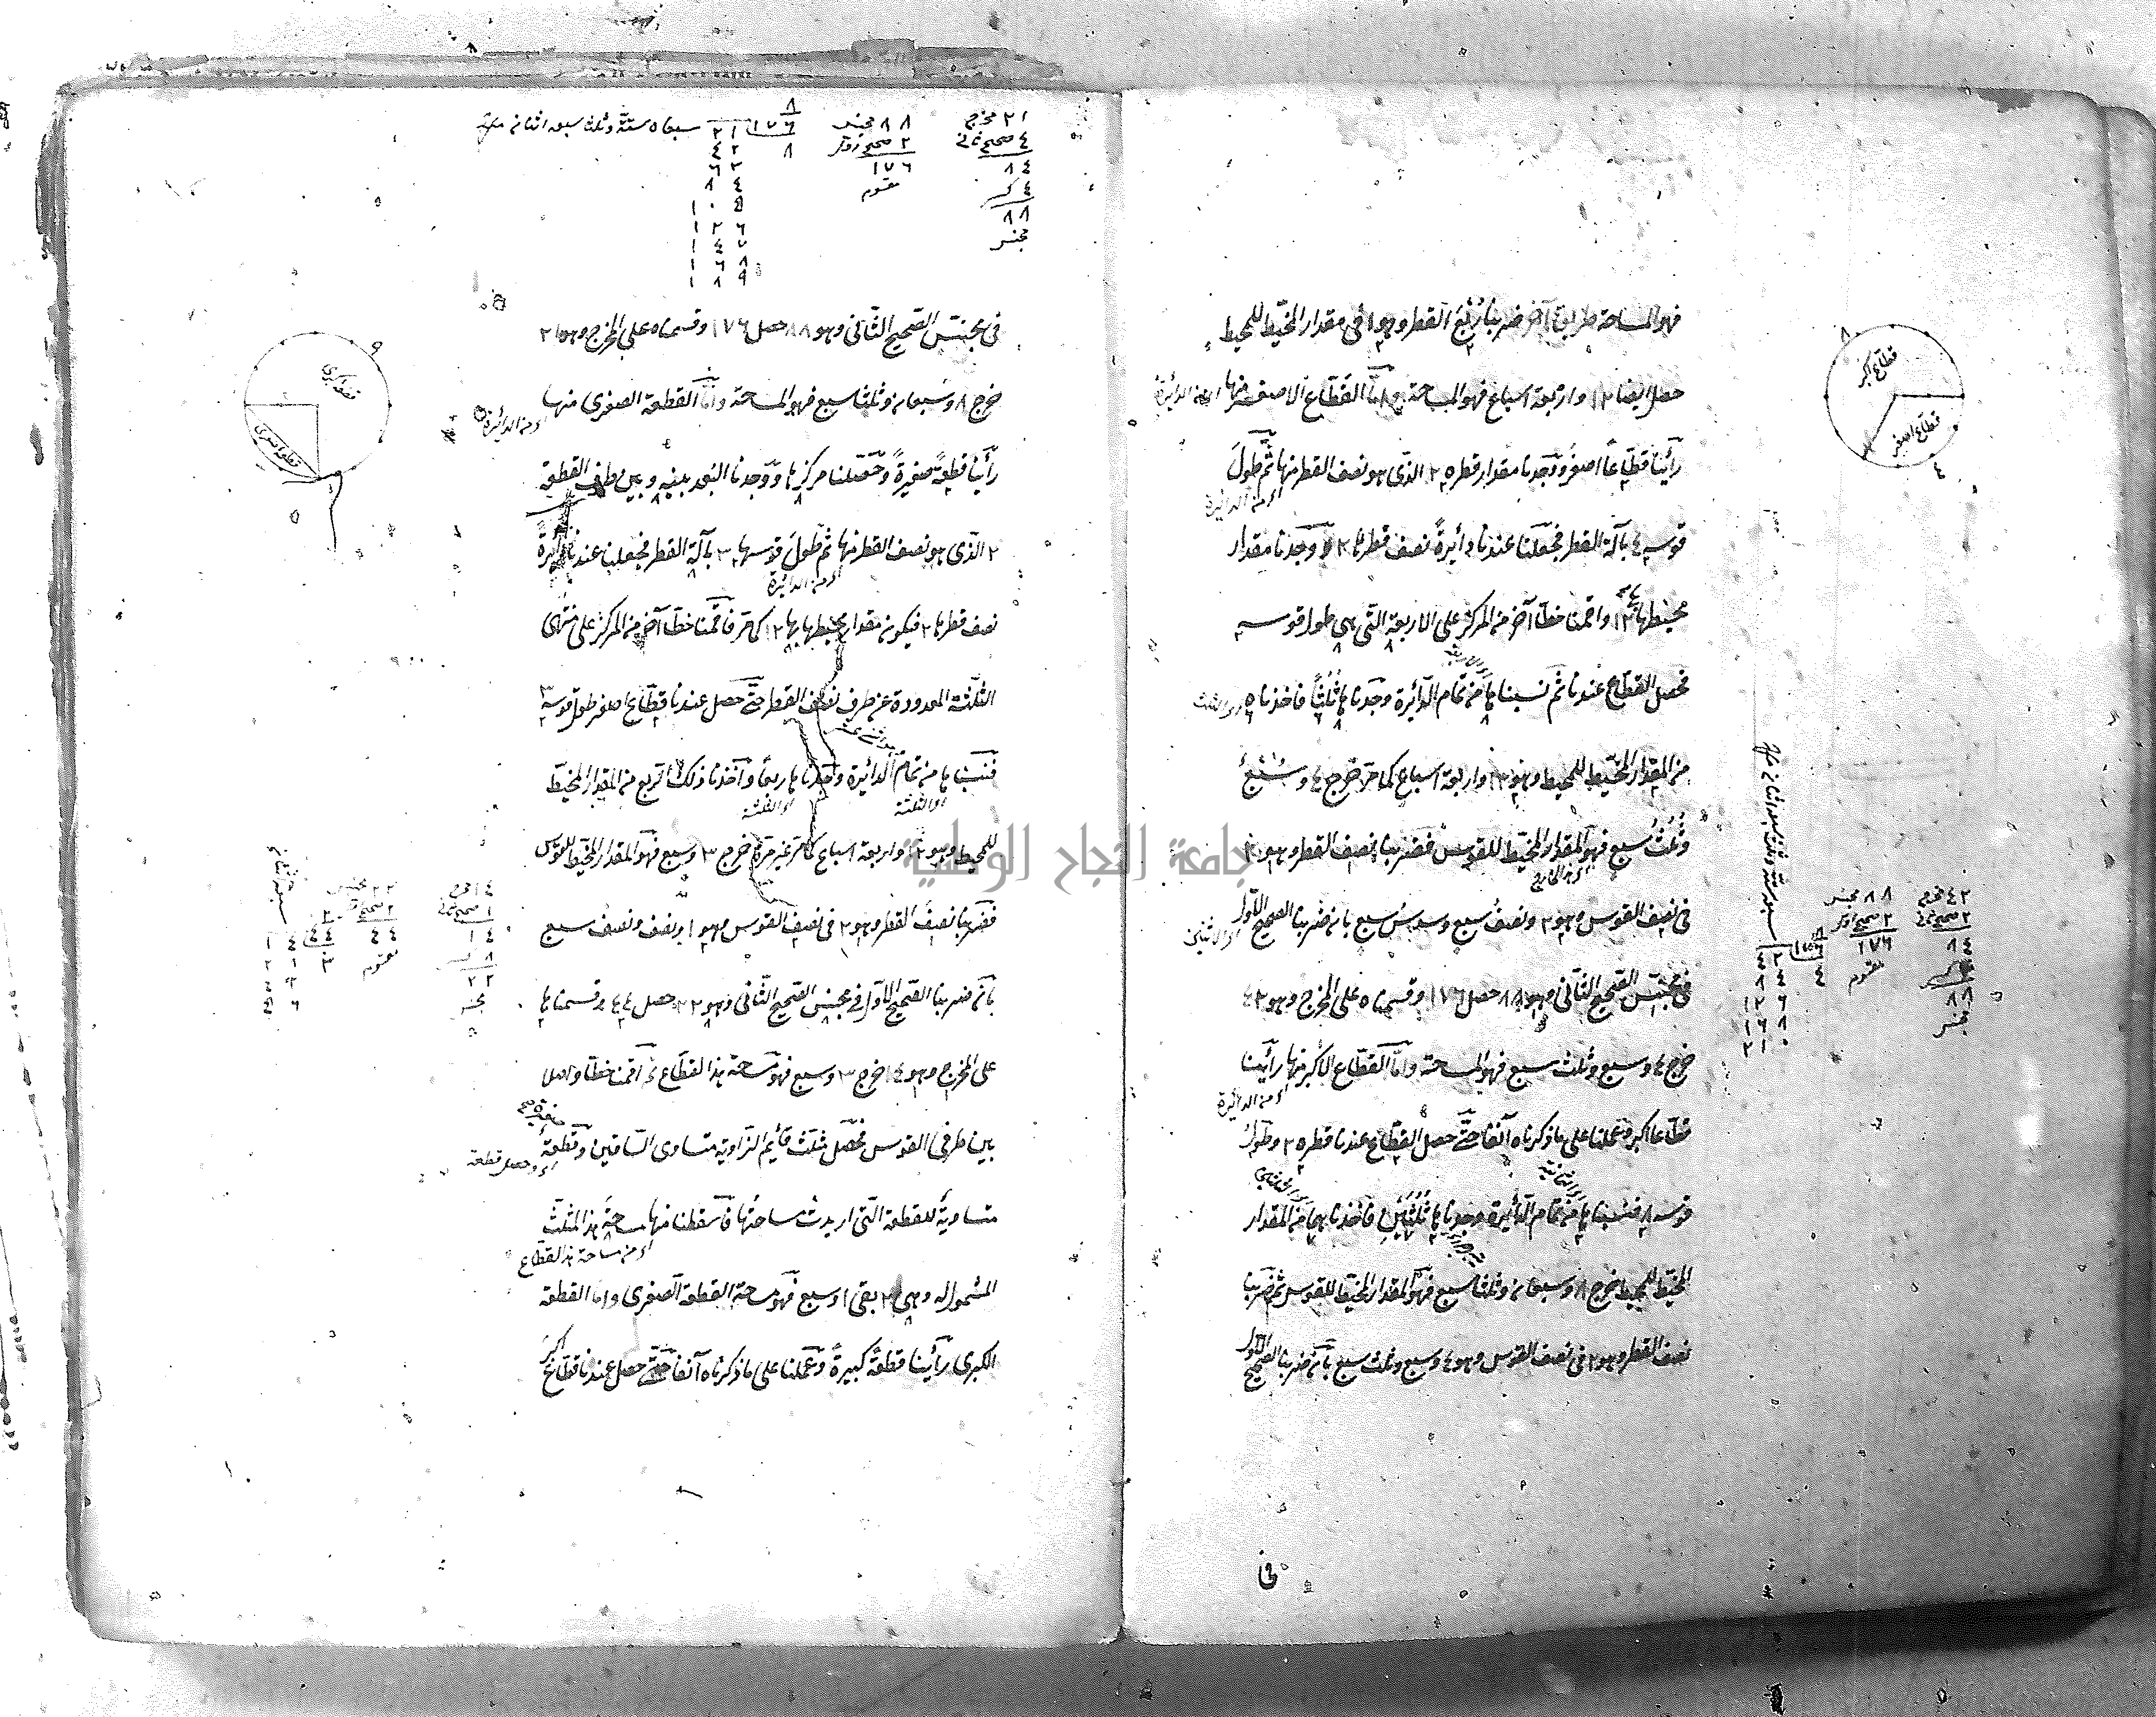 فهو المساحة طريق آخر ضربنا ربع القطر وهو ١ في مقدار المخيط للمحيط
حصل ايضا ١٢ واربعة اسباع فهو المساحة واما القطاع الاصغر منها
اى من الدائرة
رأينا قطاعا اصغر ووجدنا مقدار قطره ٢ الذى هو نصف القطر منها ثم طول
اى من الدائرة
قوسه ٤ بآلة القطر فجعلنا عندنا دائرة نصف قطرها ٢ ووجدنا مقدار
محيطها ١٢ واقمنا خطا آخر من المركز على الاربعة التى هى طول قوسه
فحصل القطاع عندنا ثم نسبناها من تمام الدائرة وجدناها ثلثا فاخذناه
اى الثلث
من المقدار المخيط للمحيط وهو ١٢ واربعة اسباع كما مر خرج ٤ وسبع
وثلث سبع فهو المقدار المخيط للقوس فضربنا نصف القطر وهو ٢
اى من الخارج
فى نصف القوس وهو ٢ ونصف سبع وسدس سبع بان ضربنا الصحيح الاول
فى مجنس الصحيح الثانى وهو ٨٨ حصل ١٧٦ وقسمناه على المخرج وهو ٤٢
خرج ٤ وسبع وثلث سبع فهو المساحة واما القطاع الاكبر منها رأينا
اى من الدائرة
قطاعا اكبر وعملنا على ما ذكرناه آنفا حتى حصل القطاع عندنا قطره ٢ وطول
قوسه ٨ فنسبناها من تمام الدائرة وجدناها ثلثين فاخذناهما من المقدار
المخيط للمحيط خرج ٨ وسبعان وثلثا سبع فهو المقدار المخيط للقوس ثم ضربنا
نصف القطر وهو ٢ فى نصف القوس وهو ٤ وسبع وثلث سبع بان ضربنا الصحيح الاول
فى
قطاع اكبر
قطاع اصغر
٨
٤
٤٢ مخرج
٢ صحيح ثانى
٨٤
٨٨
مجنس
٨٨ مجنس
٢ صحيح اول
١٧٦
مقسوم
٢١ مخرج
٤ صحيح ثانى
٨٤
٤ كسر
٨٨
مجنس
٨٨ مجنس
٢ صحيح اول
١٧٦
مقسوم
٨
١٧٦
٨
٢١
٢ ٤
٣ ٦
٤ ٨
٥ ١٠
٦ ١٢
٧ ١٤
٨ ١٦
٩ ١٨
فى مجنس الصحيح الثانى وهو ٨٨ حصل ١٧٦ وقسمناه على المخرج وهو ٢١
خرج ٨ وسبعان وثلثا سبع فهو المساحة واما القطعة الصغرى منها
اى من الدائرة
رأينا قطعة صغيرة وحصلنا مركزها ووجدنا البعد بينه وبين طرف القطعة
٢ الذى هو نصف القطر منها ثم طول قوسها ٣ بآلة القطر فجعلنا عندنا دائرة
اى من الدائرة
نصف قطرها ٢ فيكون مقدار محيطها بها ١٢ كما مر فاقمنا خطا آخر من المركز على منتهى
الثلثة المعدودة من طرف نصف القطر حتى حصل عندنا قطاع اصغر طول قوسه ٣
فنسبناها من تمام الدائرة وجدناها ربعا واخذنا ذلك الربع من المقدار المخيط
اى الثلثة
اى الثلثة
للمحيط وهو ١٢ واربعة اسباع كما مر غير مرة خرج ٣ وسبع فهو المقدار المخيط للقوس
فضربنا نصف القطر وهو ٢ فى نصف القوس وهو ١ ونصف ونصف سبع
بان ضربنا الصحيح الاول فى مجنس الصحيح الثانى وهو ٢٢ حصل ٤٤ وقسمناها
على المخرج وهو ١٤ خرج ٣ وسبع فهو مساحة هذا القطاع ثم اقمنا خطا واصلا
بين طرفى القوس فحصل مثلث قائم الزاوية متساوى الساقين وقطعة
اى وحصل قطعة
متساوية للقطعة التى اريدت مساحتها فاسقطنا منها مساحة هذا المثلث
اى من مساحة هذا القطاع
المشمول له وهى ٢ بقى ١ وسبع فهو مساحة القطعة الصغرى واما القطعة
الكبرى رأينا قطعة كبيرة وعملنا على ما ذكرناه آنفا حتى حصل عندنا قطاع اكبر
٩
قطعة كبرى
قطعة صغرى
١٤ مخرج
١ صحيح ثانى
١٤
٨
٢٢
مجنس
٢٢ مجنس
٢ صحيح اول
٤٤
مقسوم
٤٤
٣
جامعة النجاح الوطنية